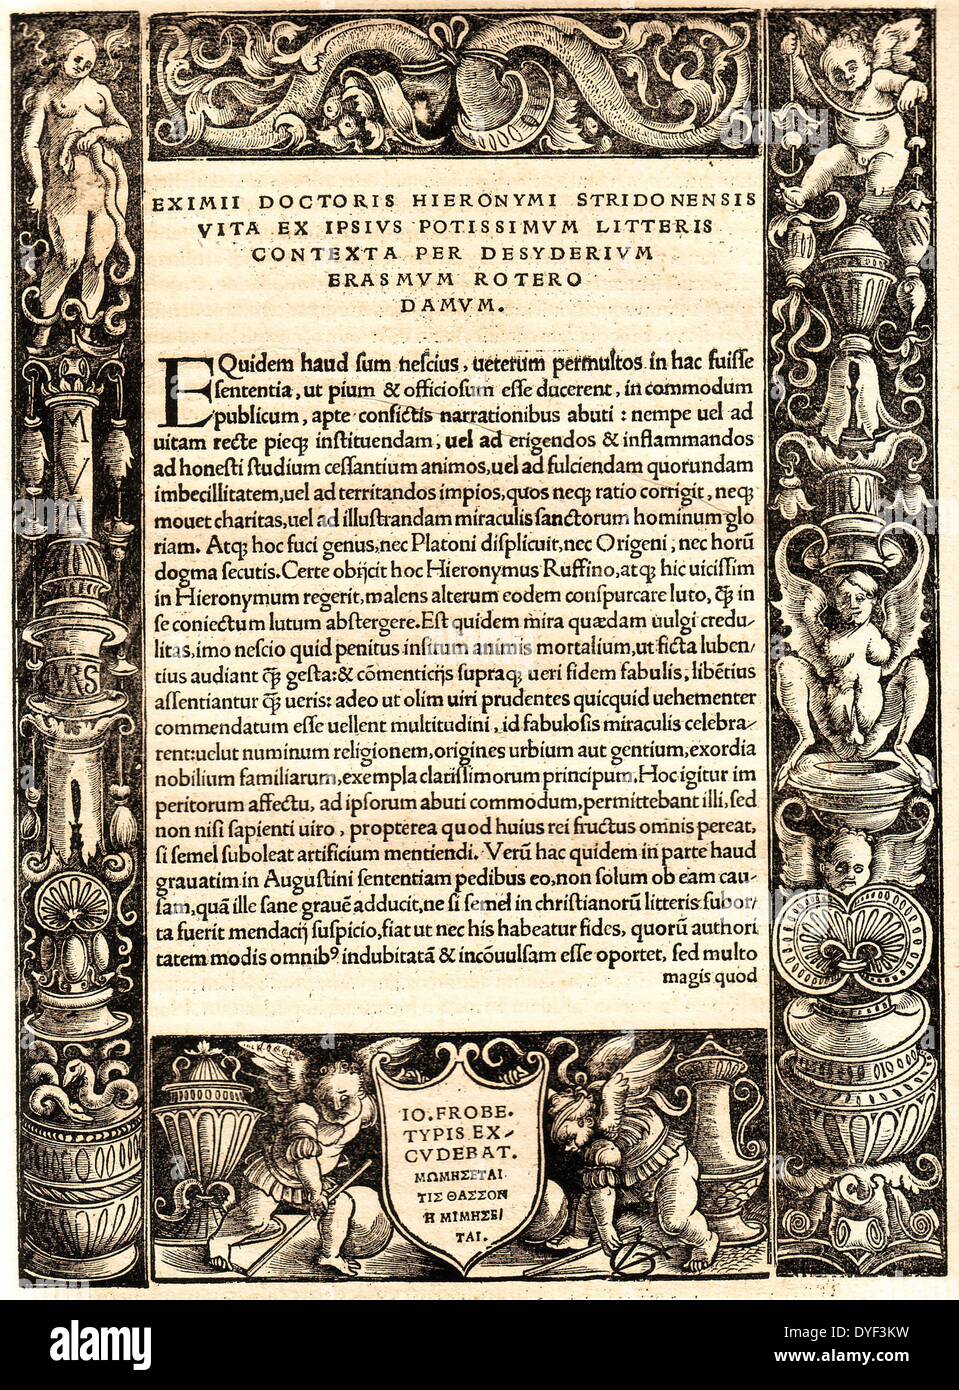 EXIMII DOCTORIS HIERONYMI STRIDONENSIS
VITA EX IPSIVS POTISSIMVM LITTERIS
CONTEXTA PER DESYDERIVM
ERASMVM ROTERO
DAMVM.
EQuidem haud ſum neſcius, ueterum permultos in hac fuiſſe
ſententia, ut pium & officioſum eſſe ducerent, in commodum
publicum, apte confictis narrationibus abuti: nempe uel ad
uitam recte pieq; inſtituendam, uel ad erigendos & inflammandos
ad honeſti ſtudium ceſſantium animos, uel ad fulciendam quorundam
imbecillitatem, uel ad territandos impios, quos neq; ratio corrigit, neq;
mouet charitas, uel ad illuſtrandam miraculis ſanctorum hominum glo
riam. Atq; hoc fuci genus, nec Platoni diſplicuit, nec Origeni, nec horū
dogma ſecutis. Certe obijcit hoc Hieronymus Ruffino, atq; hic uiciſſim
in Hieronymum regerit, malens alterum eodem conſpurcare luto, q̃ in
ſe coniectum lutum abſtergere. Eſt quidem mira quædam uulgi credu-
litas, imo neſcio quid penitus inſitum animis mortalium, ut ficta luben-
tius audiant q̃ geſta: & cōmenticijs ſupraq; ueri fidem fabulis, libētius
aſſentiantur q̃ ueris: adeo ut olim uiri prudentes quicquid uehementer
commendatum eſſe uellent multitudini, id fabuloſis miraculis celebra-
rent: uelut numinum religionem, origines urbium aut gentium, exordia
nobilium familiarum, exempla clariſſimorum principum. Hoc igitur im
peritorum affectu, ad ipſorum abuti commodum, permittebant illi, ſed
non niſi ſapienti uiro, propterea quod huius rei fructus omnis pereat,
ſi ſemel ſuboleat artificium mentiendi. Verū hac quidem in parte haud
grauatim in Auguſtini ſententiam pedibus eo, non ſolum ob eam cau-
ſam, quā ille ſane grauē adducit, ne ſi ſemel in chriſtianorū litteris ſubor-
ta fuerit mendacij ſuſpicio, fiat ut nec his habeatur fides, quorū authori
tatem modis omnibꝰ indubitatā & incōuulſam eſſe oportet, ſed multo
magis quod
MVA
VRS
IO. FROBE.
TYPIS EX-
CVDEBAT.
ΜΩΜΗΣΕΤΑΙ
ΤΙΣ ΘΑΣΣΟΝ
Η ΜΙΜΗΣΕΙ
ΤΑΙ.
alamy
Image ID: DYF3KW
www.alamy.com